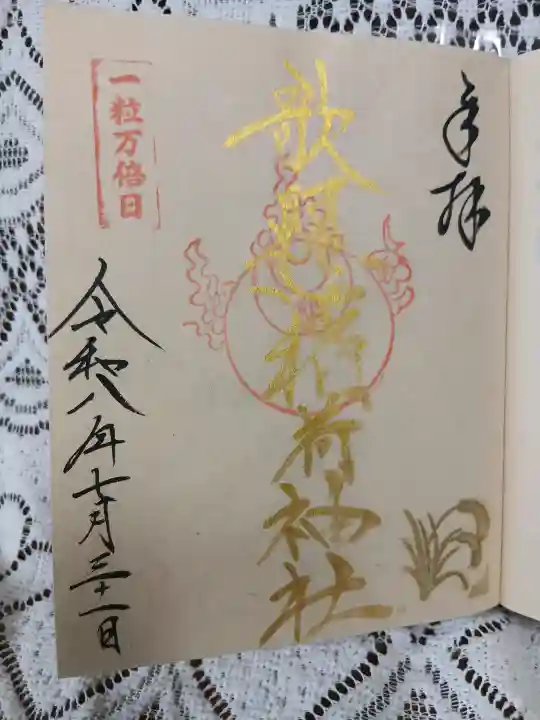 奉拝
歌懸稲荷神社
一粒万倍日
令和八年七月三十一日